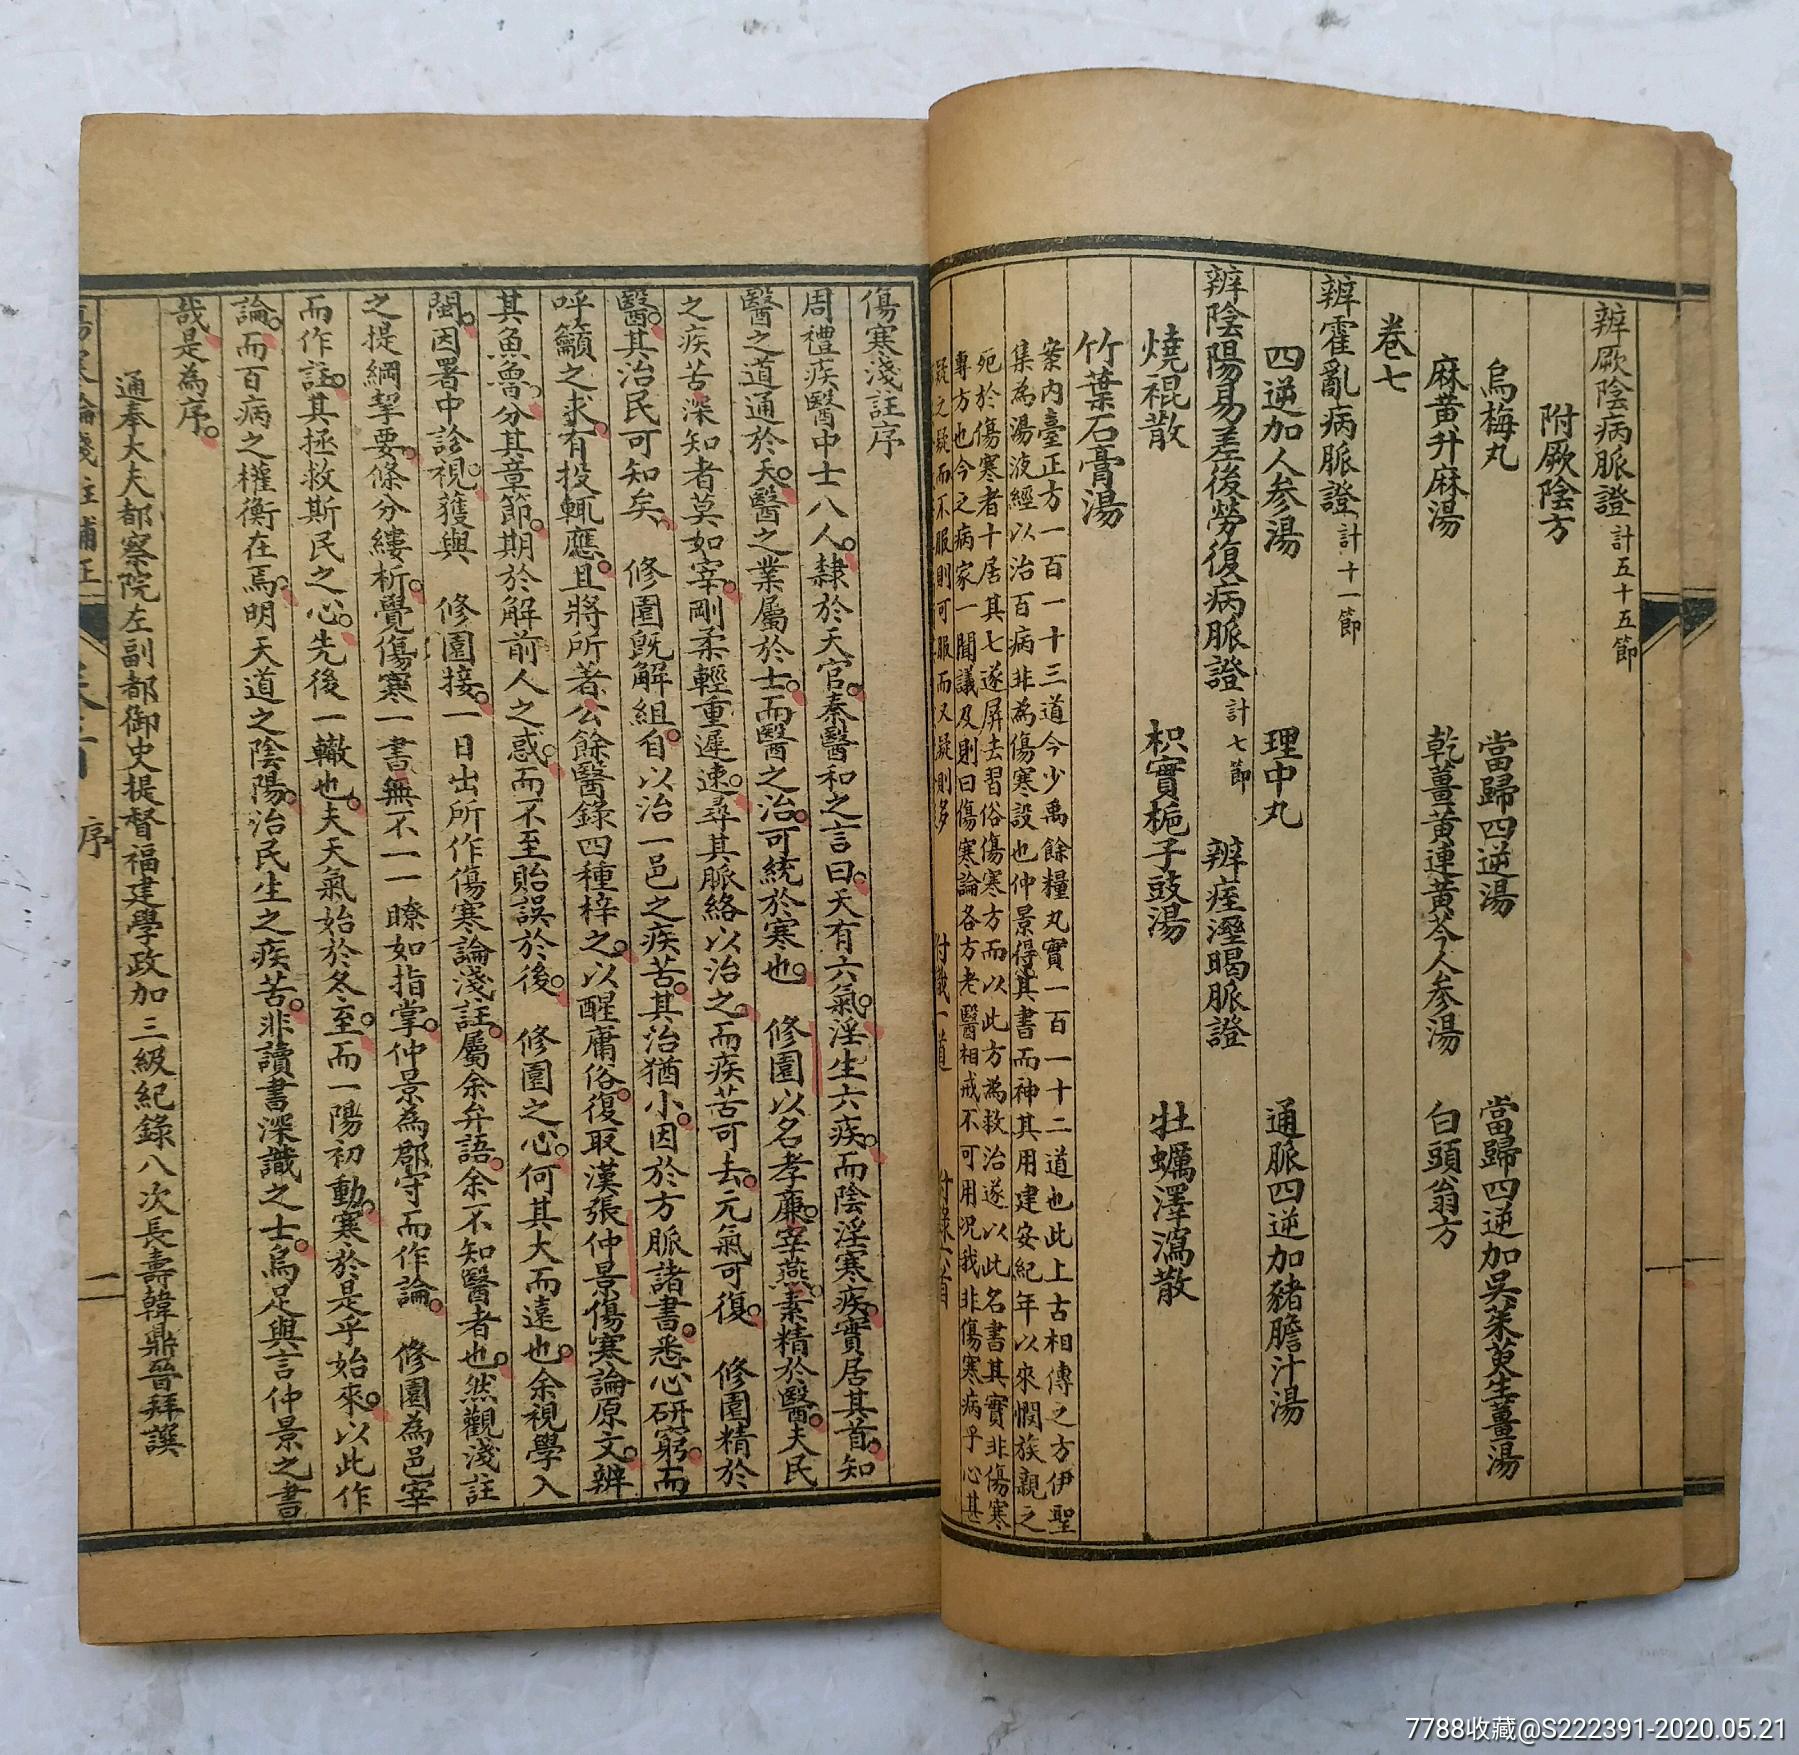 辨厥陰病脈證計五十五節
附厥陰方
烏梅丸　當歸四逆湯　當歸四逆加吳茱萸生薑湯
麻黄升麻湯　乾薑黄連黄芩人參湯　白頭翁方
卷七
辨霍亂病脈證計十一節
四逆加人參湯　理中丸　通脈四逆加豬膽汁湯
辨陰陽易差後勞復病脈證計七節　辨痓溼暍脈證
燒裩散　枳實梔子豉湯　牡蠣澤瀉散
竹葉石膏湯
案内臺正方一百一十三道今少禹餘糧丸實一百一十二道也此上古相傳之方伊聖
集為湯液經以治百病非為傷寒設也仲景得其書而神其用建安紀年以來憫族親之
死於傷寒者十居其七遂屏去習俗傷寒方而以此方為救治遂以此名書其實非傷寒
專方也今之病家一聞議及則曰傷寒論各方老醫相戒不可用况我非傷寒病乎心甚
疑之疑而不服則可服而又疑則多
傷寒淺註序
周禮疾醫中士八人。隸於天官。秦醫和之言曰。天有六氣。淫生六疾。而陰淫寒疾。實居其首。知
醫之道通於天。醫之業屬於士。而醫之治。可統於寒也。　修園以名孝廉。宰燕。素精於醫。夫民
之疾苦。深知者莫如宰。剛柔輕重遲速。尋其脈絡以治之。而疾苦可去。元氣可復。　修園精於
醫。其治民可知矣。　修園旣解組。自以治一邑之疾苦。其治猶小。因於方脈諸書。悉心研窮。而
呼籲之求。有投輒應。且將所著公餘醫錄四種梓之。以醒庸俗。復取漢張仲景傷寒論原文。辨
其魚魯。分其章節。期於解前人之惑。而不至貽誤於後。　修園之心。何其大而遠也。余視學入
閩。因署中診視。獲與　修園接。一日出所作傷寒論淺註。屬余弁語。余不知醫者也。然觀淺註
之提綱挈要。條分縷析。覺傷寒一書。無不一一瞭如指掌。仲景為郡守而作論。　修園為邑宰
而作註。其拯救斯民之心。先後一轍也。夫天氣始於冬至。而一陽初動。寒於是乎始來。以此作
論。而百病之權衡在焉。明天道之陰陽。治民生之疾苦。非讀書深識之士。烏足與言仲景之書
哉。是為序。
通奉大夫都察院左副都御史提督福建學政加三級紀錄八次長壽韓鼎晉拜譔
傷寒論淺註補正　卷首　序　二
7788收藏@S222391-2020.05.21